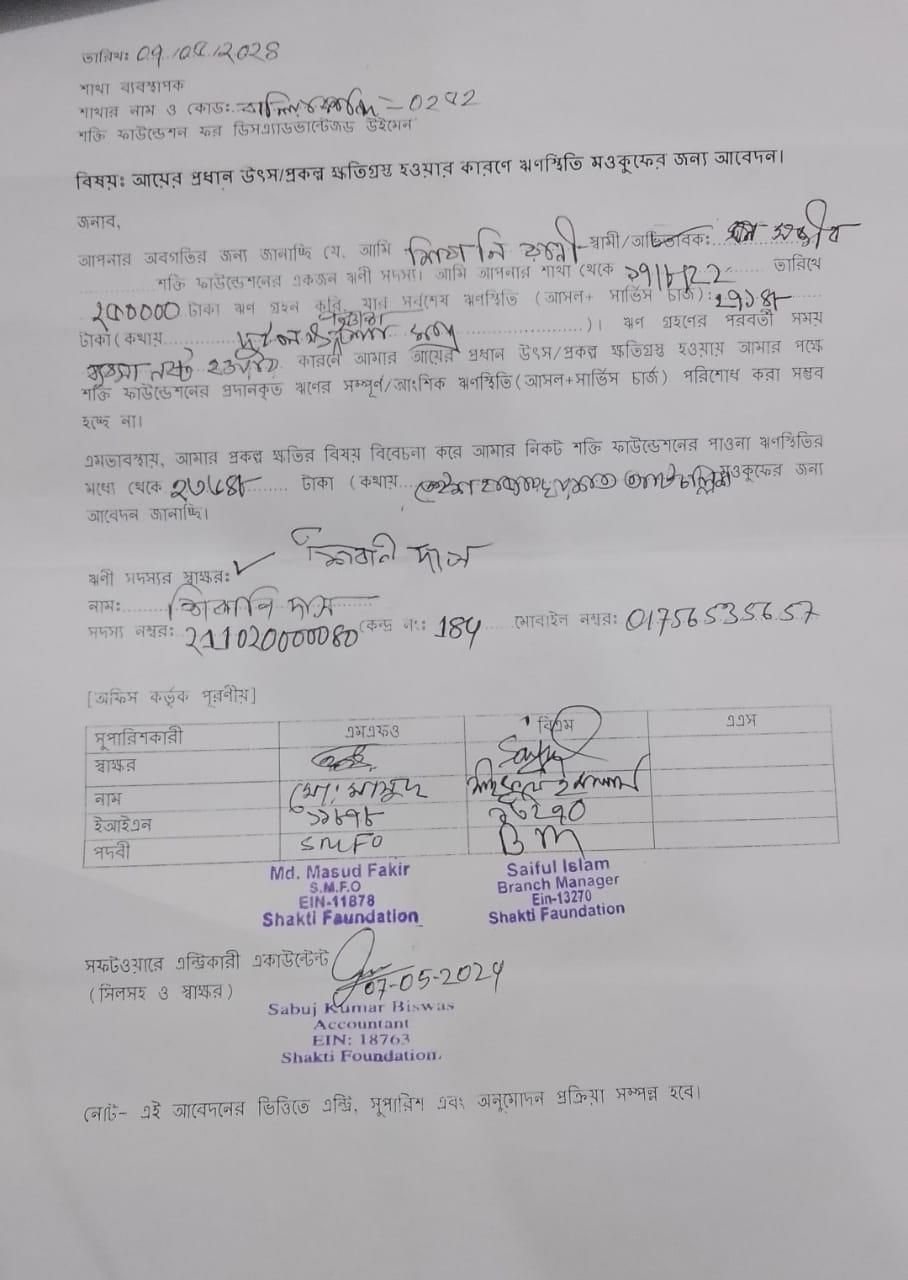 তারিখঃ 07/05/2024
শাখা ব্যবস্থাপক
শাখার নাম ও কোডঃ = 0272
শক্তি ফাউন্ডেশন ফর ডিসএ্যাডভান্টেজড উইমেন
বিষয়ঃ আয়ের প্রধান উৎস/প্রকল্প ক্ষতিগ্রস্ত হওয়ার কারণে ঋণস্থিতি মওকুফের জন্য আবেদন।
জনাব,
আপনার অবগতির জন্য জানাচ্ছি যে, আমি স্বামী/অভিভাবকঃ
শক্তি ফাউন্ডেশনের একজন ঋনী সদস্য। আমি আপনার শাখা থেকে তারিখে
টাকা ঋণ গ্রহন করি, যার সর্বশেষ ঋণস্থিতি (আসল+ সার্ভিস চার্জ):
টাকা(কথায় )। ঋণ গ্রহণের পরবর্তী সময়
ব্যবসা নষ্ট হওয়ায় কারনে আমার আয়ের প্রধান উৎস/প্রকল্প ক্ষতিগ্রস্ত হওয়ায় আমার পক্ষে
শক্তি ফাউন্ডেশনের প্রদানকৃত ঋণের সম্পূর্ণ/আংশিক ঋণস্থিতি(আসল+সার্ভিস চার্জ) পরিশোধ করা সম্ভব
হচ্ছে না।
এমতাবস্থায়, আমার প্রকল্প ক্ষতির বিষয় বিবেচনা করে আমার নিকট শক্তি ফাউন্ডেশনের পাওনা ঋণস্থিতির
মধ্যে থেকে টাকা (কথায় মওকুফের জন্য
আবেদন জানাচ্ছি।
ঋনী সদস্যর স্বাক্ষরঃ শিবানী দাস
নামঃ শিবানি দাস
সদস্য নম্বরঃ 211020000080 কেন্দ্র নংঃ 184 মোবাইল নম্বরঃ 01756535657
[অফিস কর্তৃক পূরনীয়]
সুপারিশকারী এমএফও বিএম এএস
স্বাক্ষর
নাম মোঃ মাসুদ সাইফুল ইসলাম
ইআইএন ১১৮৭৮ ১৩২৭০
পদবী SMFO BM
Md. Masud Fakir
S.M.F.O
EIN-11878
Shakti Faundation
Saiful Islam
Branch Manager
Ein-13270
Shakti Faundation
সফটওয়ারে এন্ট্রিকারী একাউন্টেন্ট
(সিলসহ ও স্বাক্ষর) 07-05-2024
Sabuj Kumar Biswas
Accountant
EIN: 18763
Shakti Foundation.
নোট- এই আবেদনের ভিত্তিতে এন্ট্রি, সুপারিশ এবং অনুমোদন প্রক্রিয়া সম্পন্ন হবে।